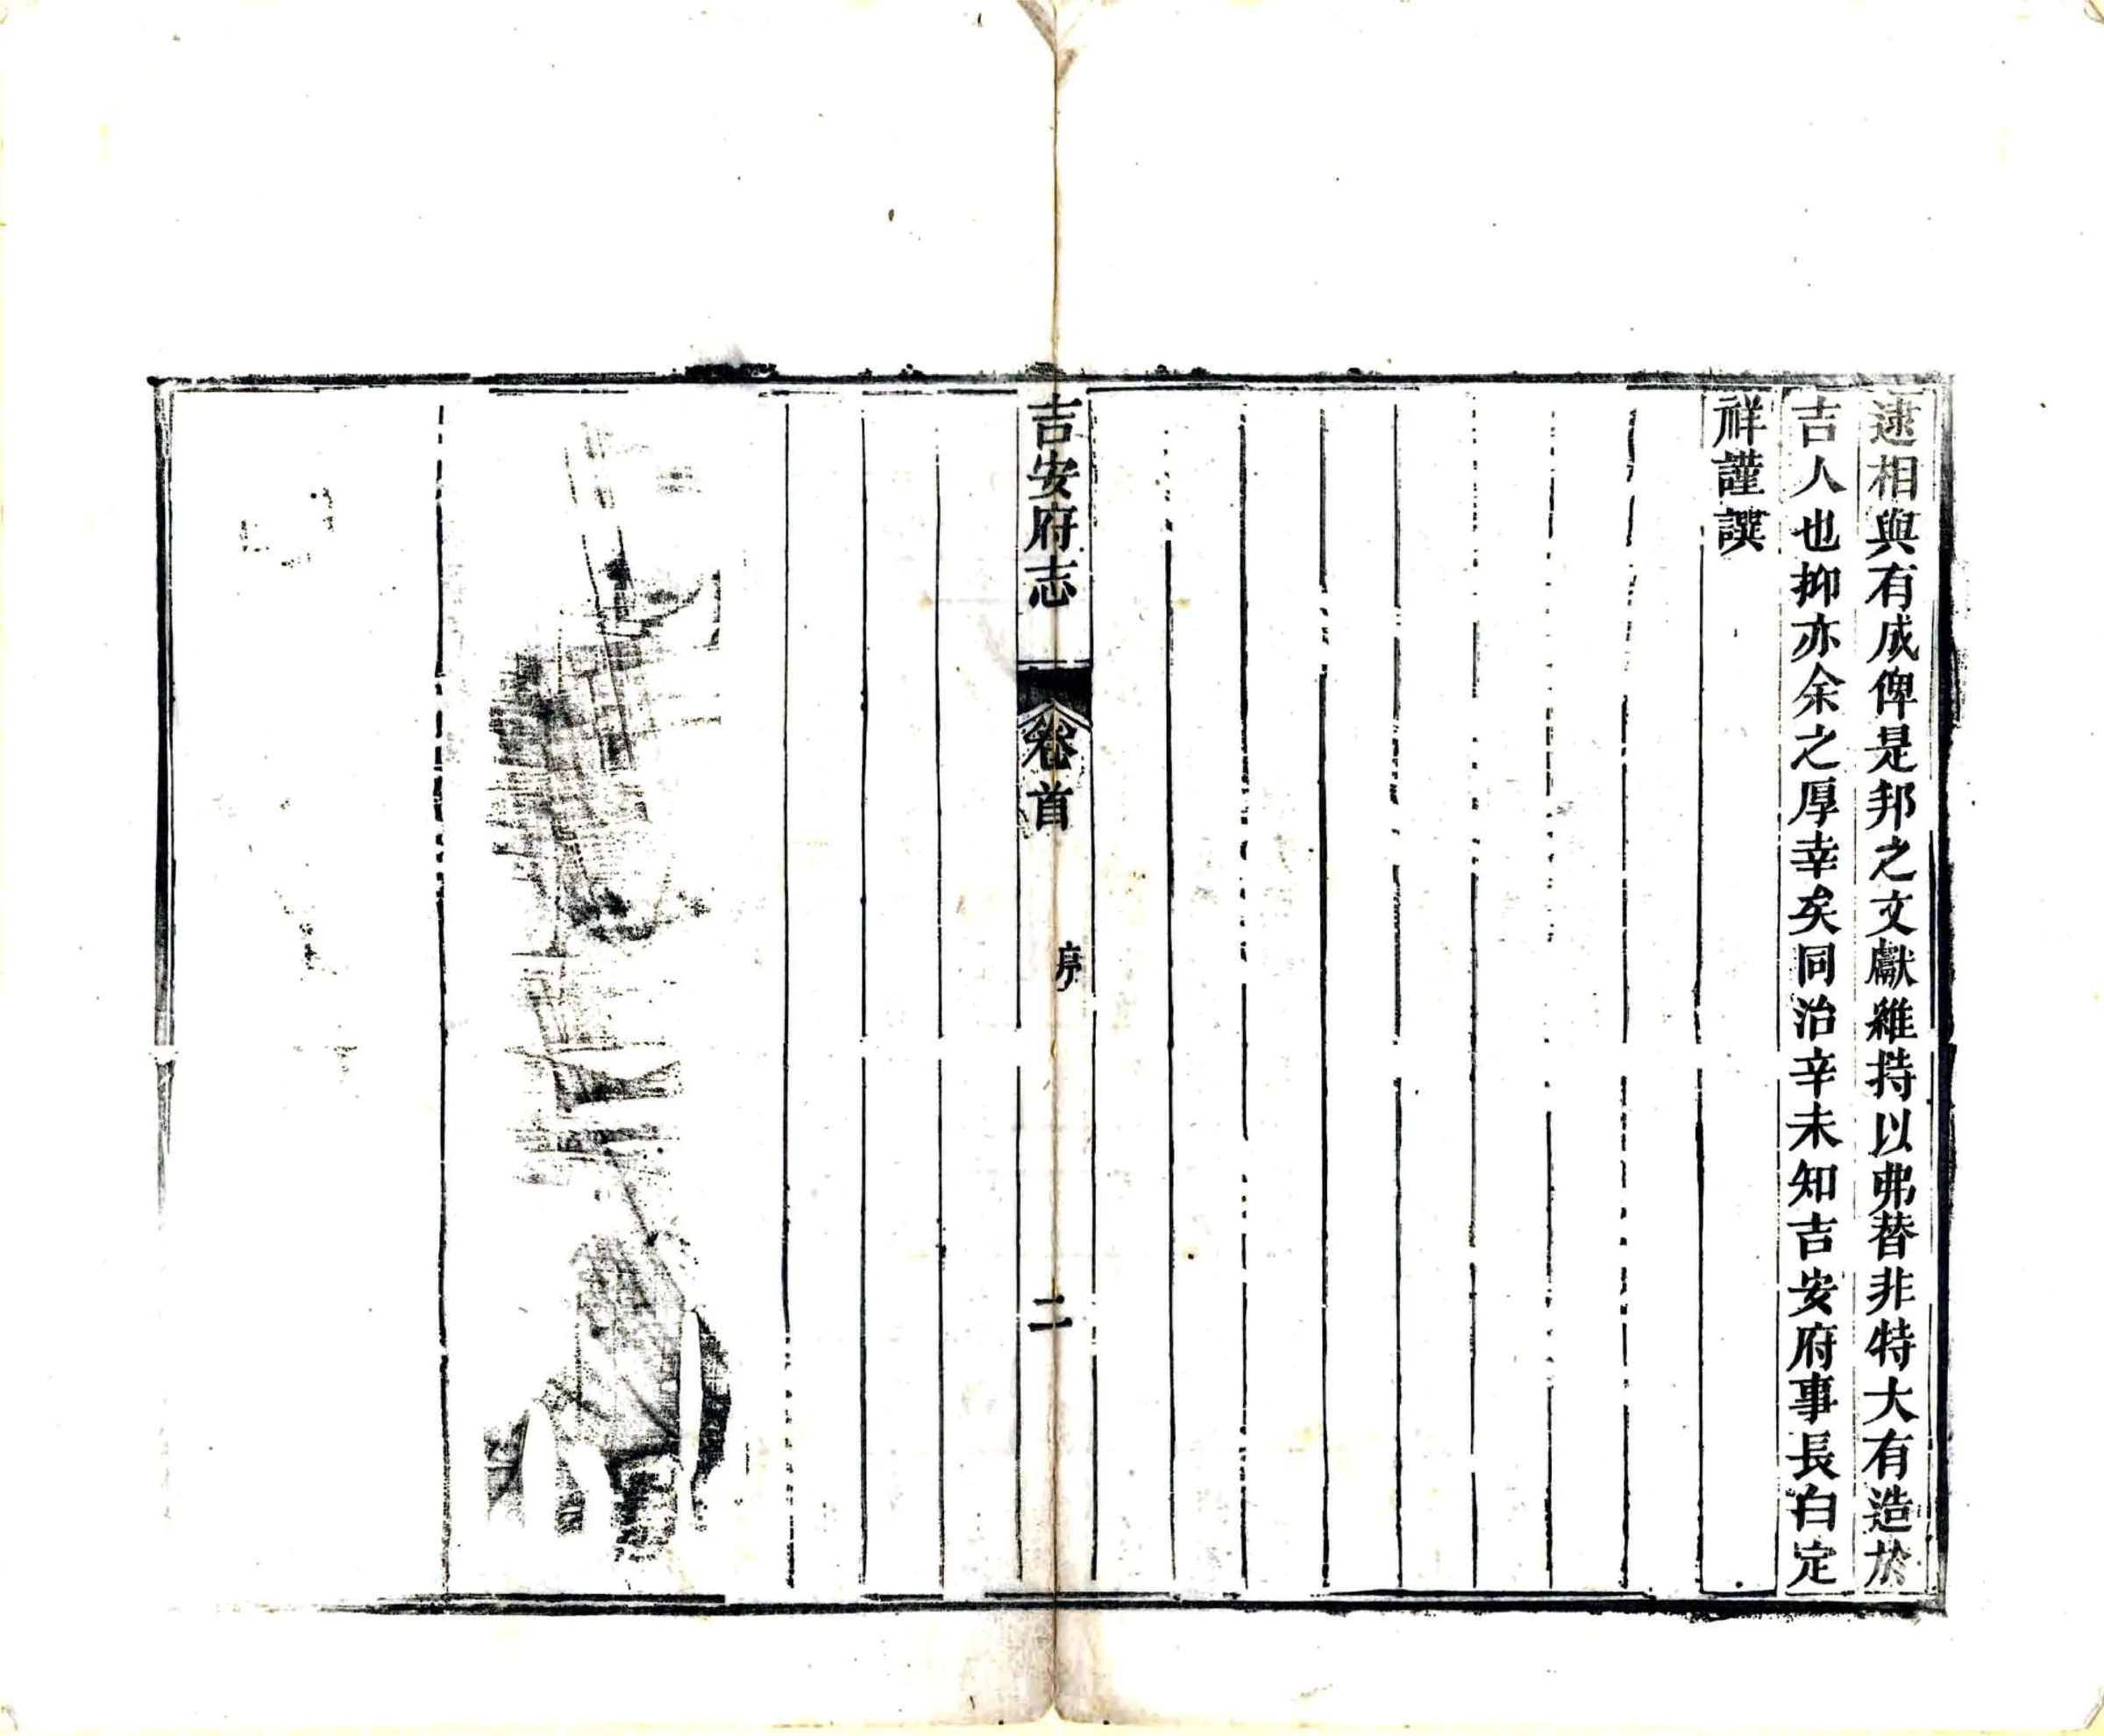 逮相與有成俾是邦之文獻維持以弗替非特大有造於
吉人也抑亦余之厚幸矣同治辛未知吉安府事長白定
祥謹譔
吉安府志
卷首
序
二